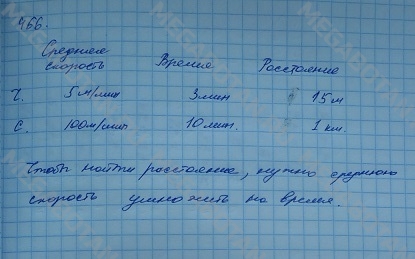 466.
Средняя скорость Время Расстояние
Ч. 5 м/мин 3 мин 15 м
С. 100 м/мин 10 мин. 1 км.
Чтобы найти расстояние, нужно среднюю
скорость умножить на время.